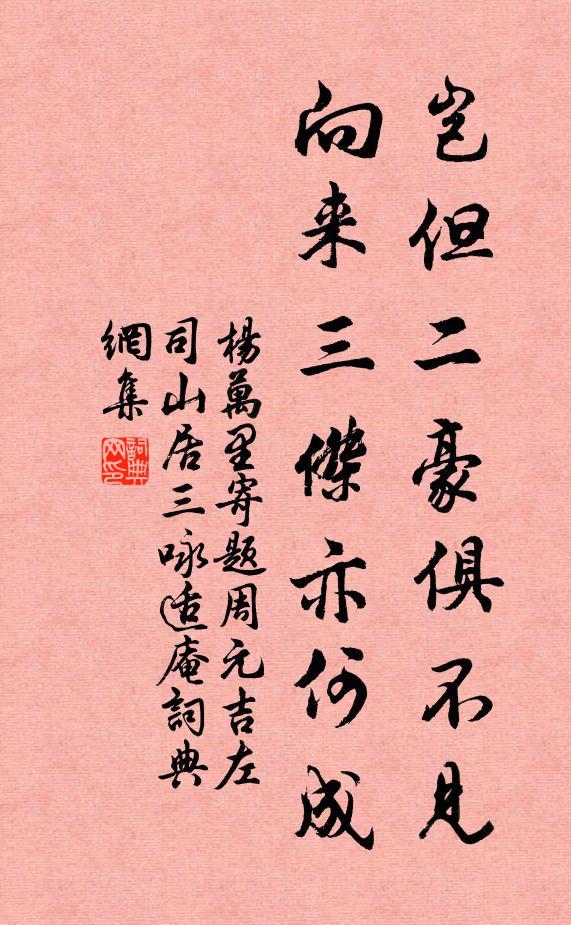 岂但二豪俱不見
向来三傑亦何成
楊萬里寄题周元吉左
司山居三咏适庵詞典
網集
詞典
网印